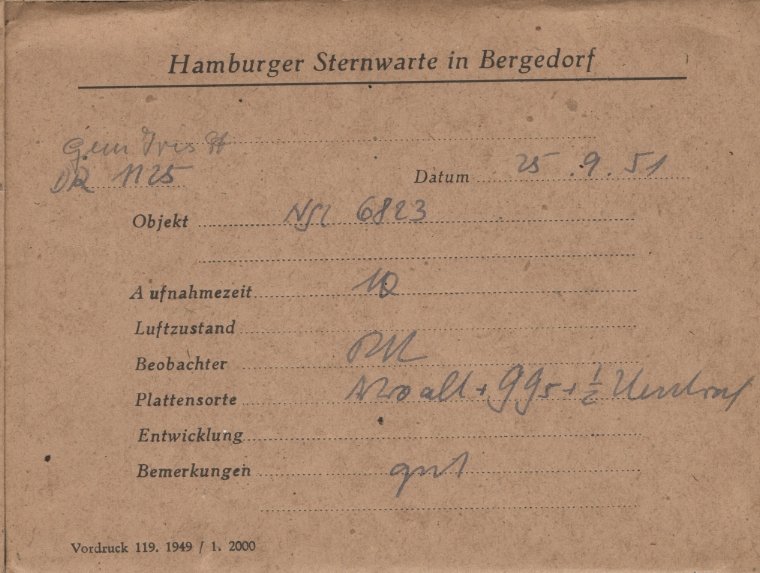 Hamburger Sternwarte in Bergedorf
Gem Iris H
DR 1125
Datum 25.9.51
Objekt 6823
Aufnahmezeit 10
Luftzustand
Beobachter
Plattensorte alt + GG5 + 1/2
Entwicklung
Bemerkungen gut
Vordruck 119. 1949 / 1. 2000